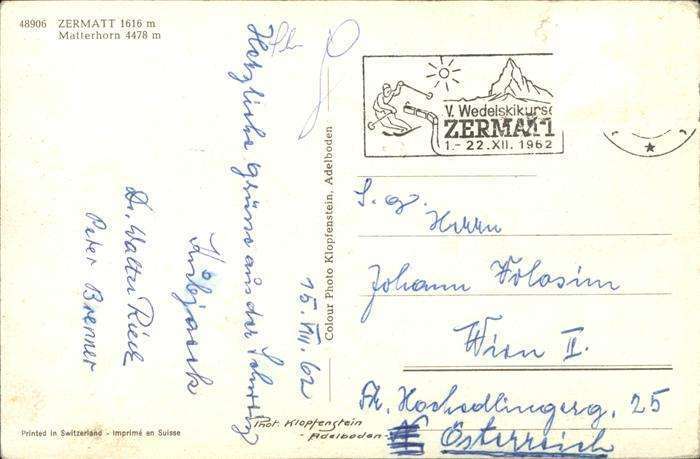 48906 ZERMATT 1616 m
Matterhorn 4478 m
V. Wedelskikurse
ZERMATT
1.-22.XII.1962
Colour Photo Klopfenstein, Adelboden
15. VII. 62
Herzliche Grüsse aus der Schweiz
Dr. Walter
Peter Brenner
S. g.
Herrn
Johann
Wien II.
Österreich
25
Phot. Klopfenstein
- Adelboden -
Printed in Switzerland - Imprimé en Suisse